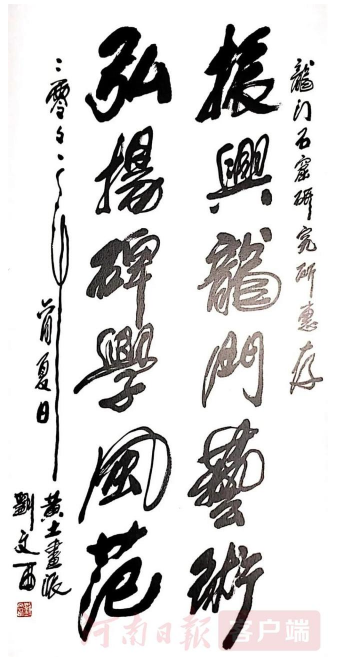 龍门石窟研究所惠存
振興龍門藝術
弘揚碑學風范
二零零二年 夏日
黄土畫派
劉文西
河南日報 客户端